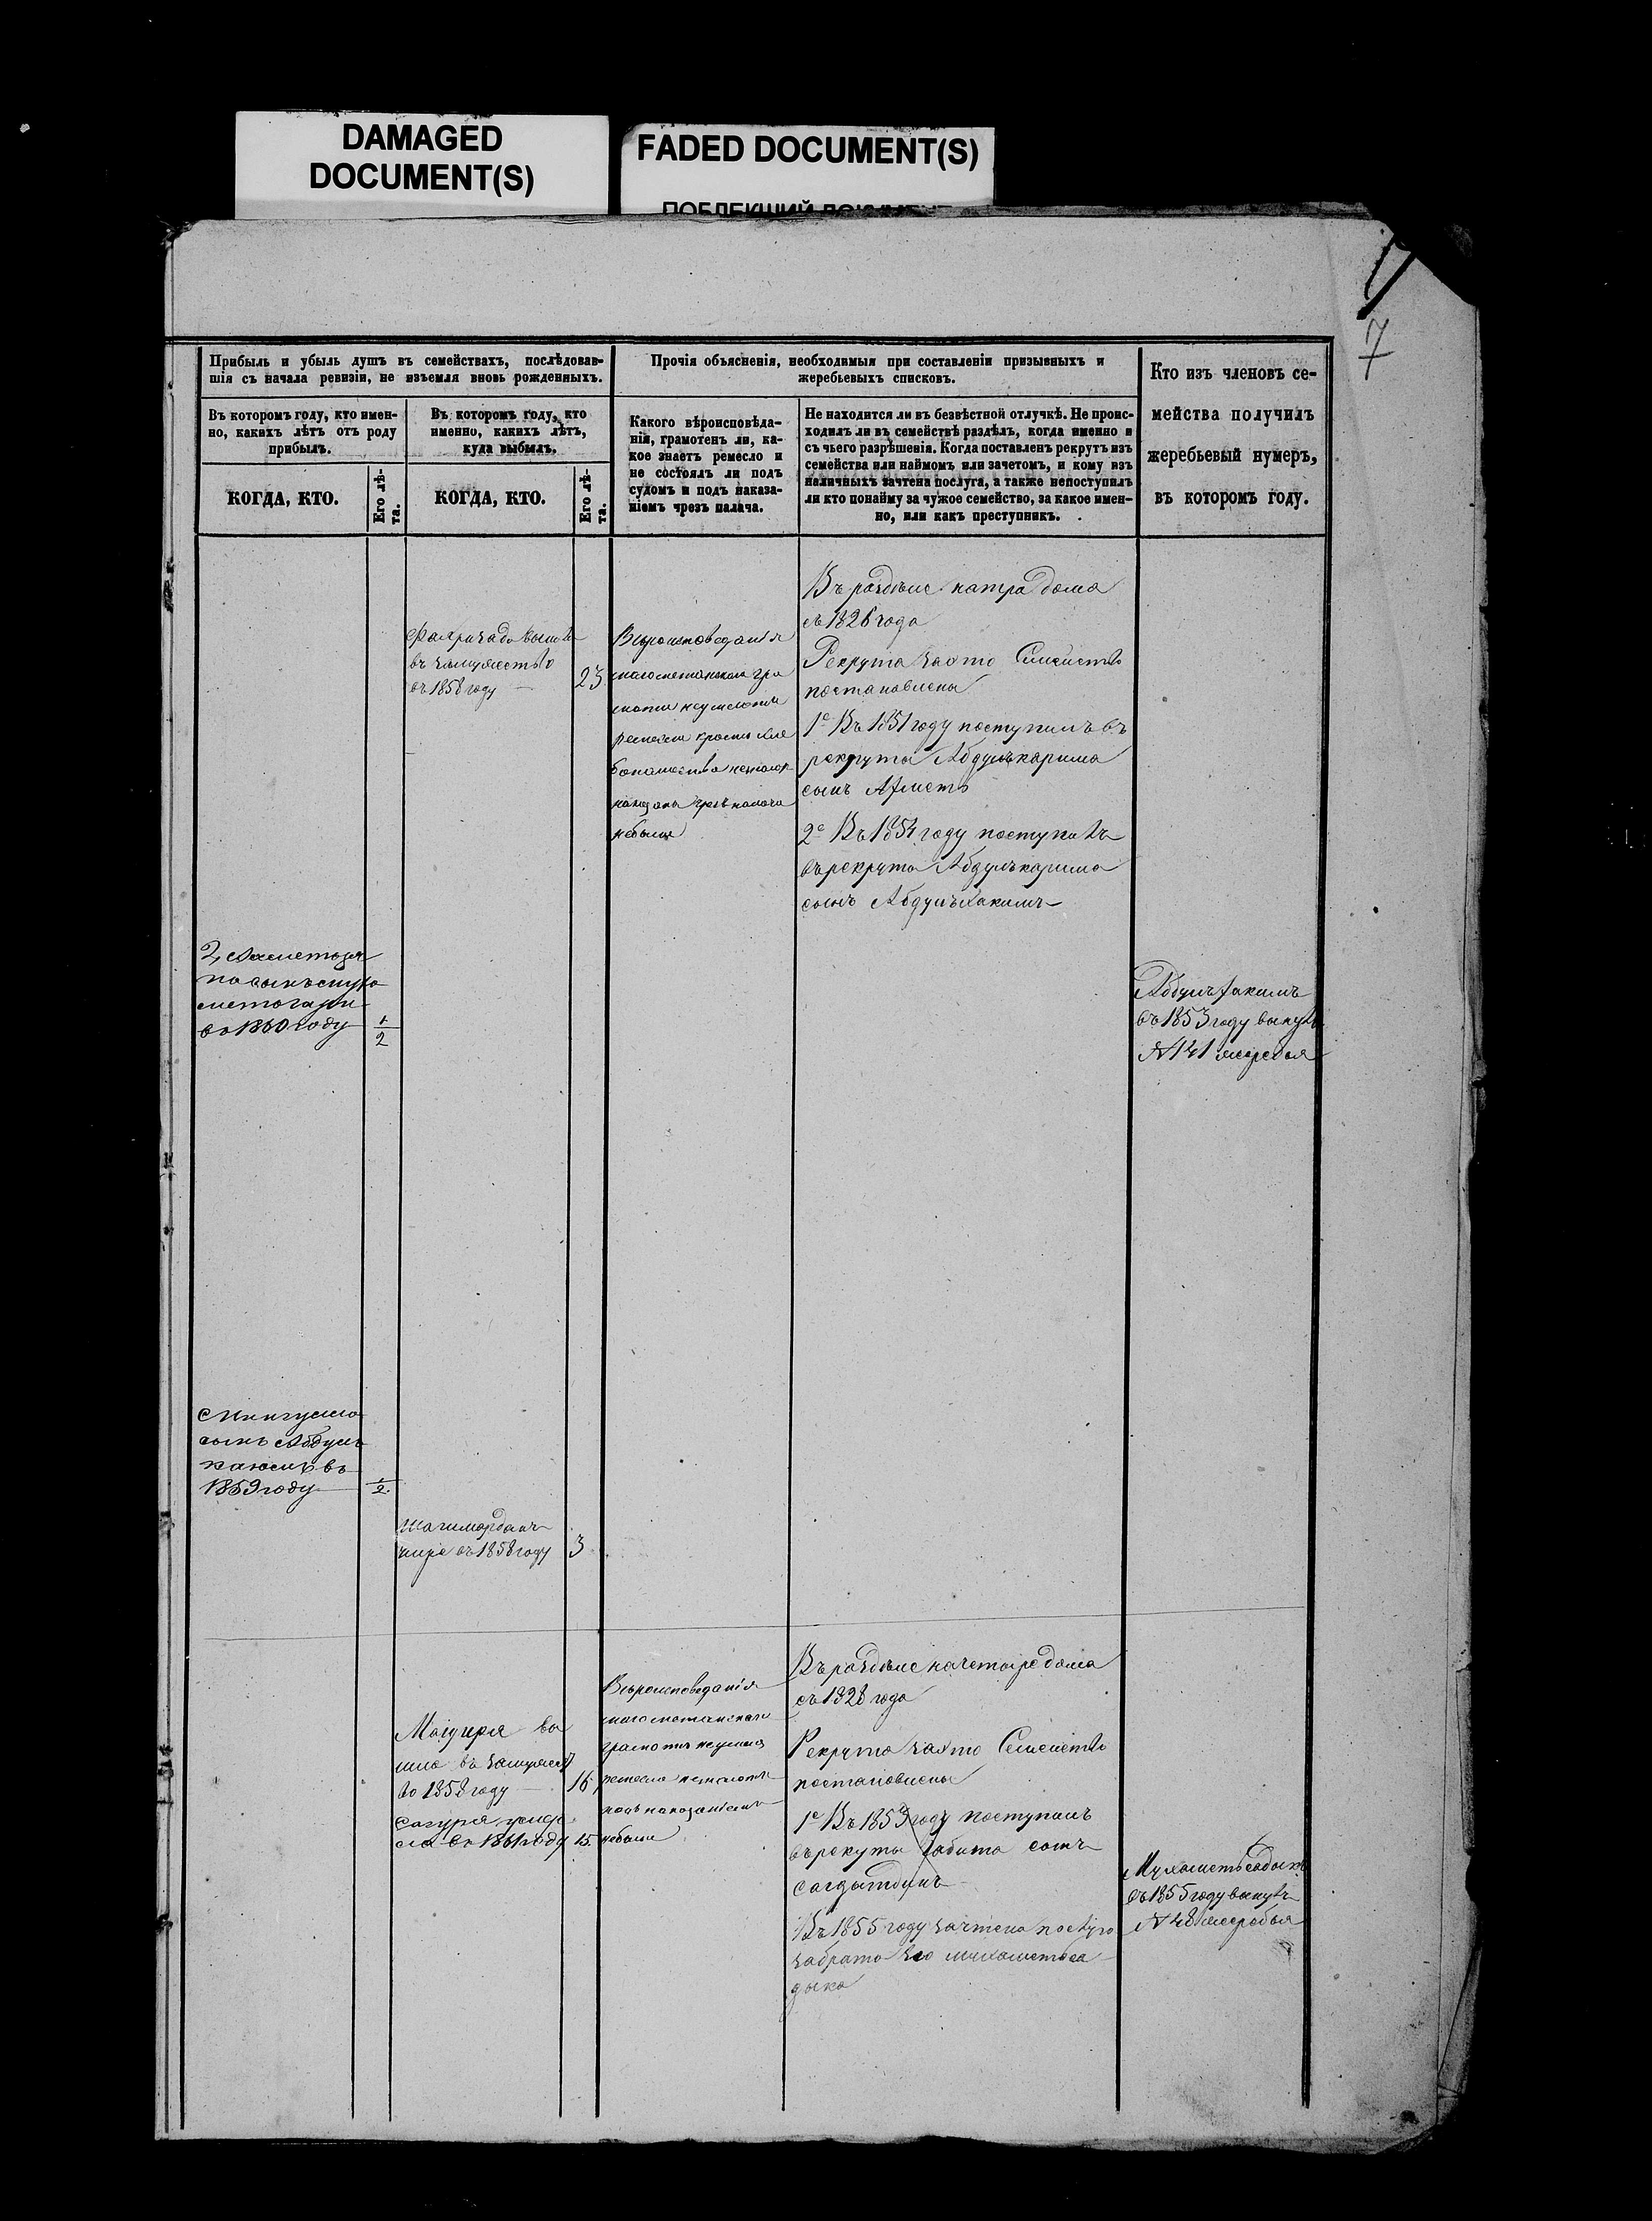 DAMAGED
DOCUMENT(S)
FADED DOCUMENT(S)
ПОБЛЕКШИЙ ДОКУМЕНТ
7
Прибыль и убыль душъ въ семействахъ, послѣдовав-
шія съ начала ревизіи, не изъемля вновь рожденныхъ.
Прочія объясненія, необходимыя при составленіи призывныхъ и
жеребьевыхъ списковъ.
Кто изъ членовъ се-
мейства получилъ
жеребьевый нумеръ,
въ которомъ году.
Въ которомъ году, кто имен-
но, какихъ лѣтъ отъ роду
прибылъ.
Въ которомъ году, кто
именно, какихъ лѣтъ,
куда выбылъ.
Какого вѣроисповѣда-
нія, грамотенъ ли, ка-
кое знаетъ ремесло и
не состоялъ ли подъ
судомъ и подъ наказа-
ніемъ чрезъ палача.
Не находится ли въ безвѣстной отлучкѣ. Не проис-
ходилъ ли въ семействѣ раздѣлъ, когда именно и
съ чьего разрѣшенія. Когда поставленъ рекрутъ изъ
семейства или наймомъ или зачетомъ, и кому изъ
наличныхъ зачтена послуга, а также непоступилъ
ли кто понайму за чужое семейство, за какое имен-
но, или какъ преступникъ.
КОГДА, КТО.
Его лѣ-
та.
КОГДА, КТО.
Его лѣ-
та.
въ замужество
въ 1858 году
23
Вероисповедания
магометанскаго гра
небыли
Въ разделе на три дома
съ 1826 года
Рекрута за это Семейство
постановлены
1е Въ 1851 году поступилъ въ
рекруты Абдулькарима
сынъ Ахметъ
2е Въ 1854 году поступилъ
въ рекрута Абдулькарима
сынъ Абдульхакимъ
во 1860 году
1/2
Абдульхакимъ
въ 1853 году вынулъ
N 141 жеребья
сынъ Абдулъ
въ
1859 году
1/2
Шагимарданъ
умре въ 1858 году
3
Вероисповедания
магометанскаго
грамоте неумея
небыли
Въ разделе на четыре дома
съ 1828 года
Рекрута за это Семейство
постановлены
1е Въ 1853 году поступилъ
въ рекуты Габита сынъ
Сагдытдинъ
Въ 1855 году зачтена послуга
за брата его мухаметьса
дыка
вы
шла въ замужест
во 1858 году
16
во 1861 году
15
Мухаметьсадыкъ
въ 1855 году вынулъ
N 48 жеребья